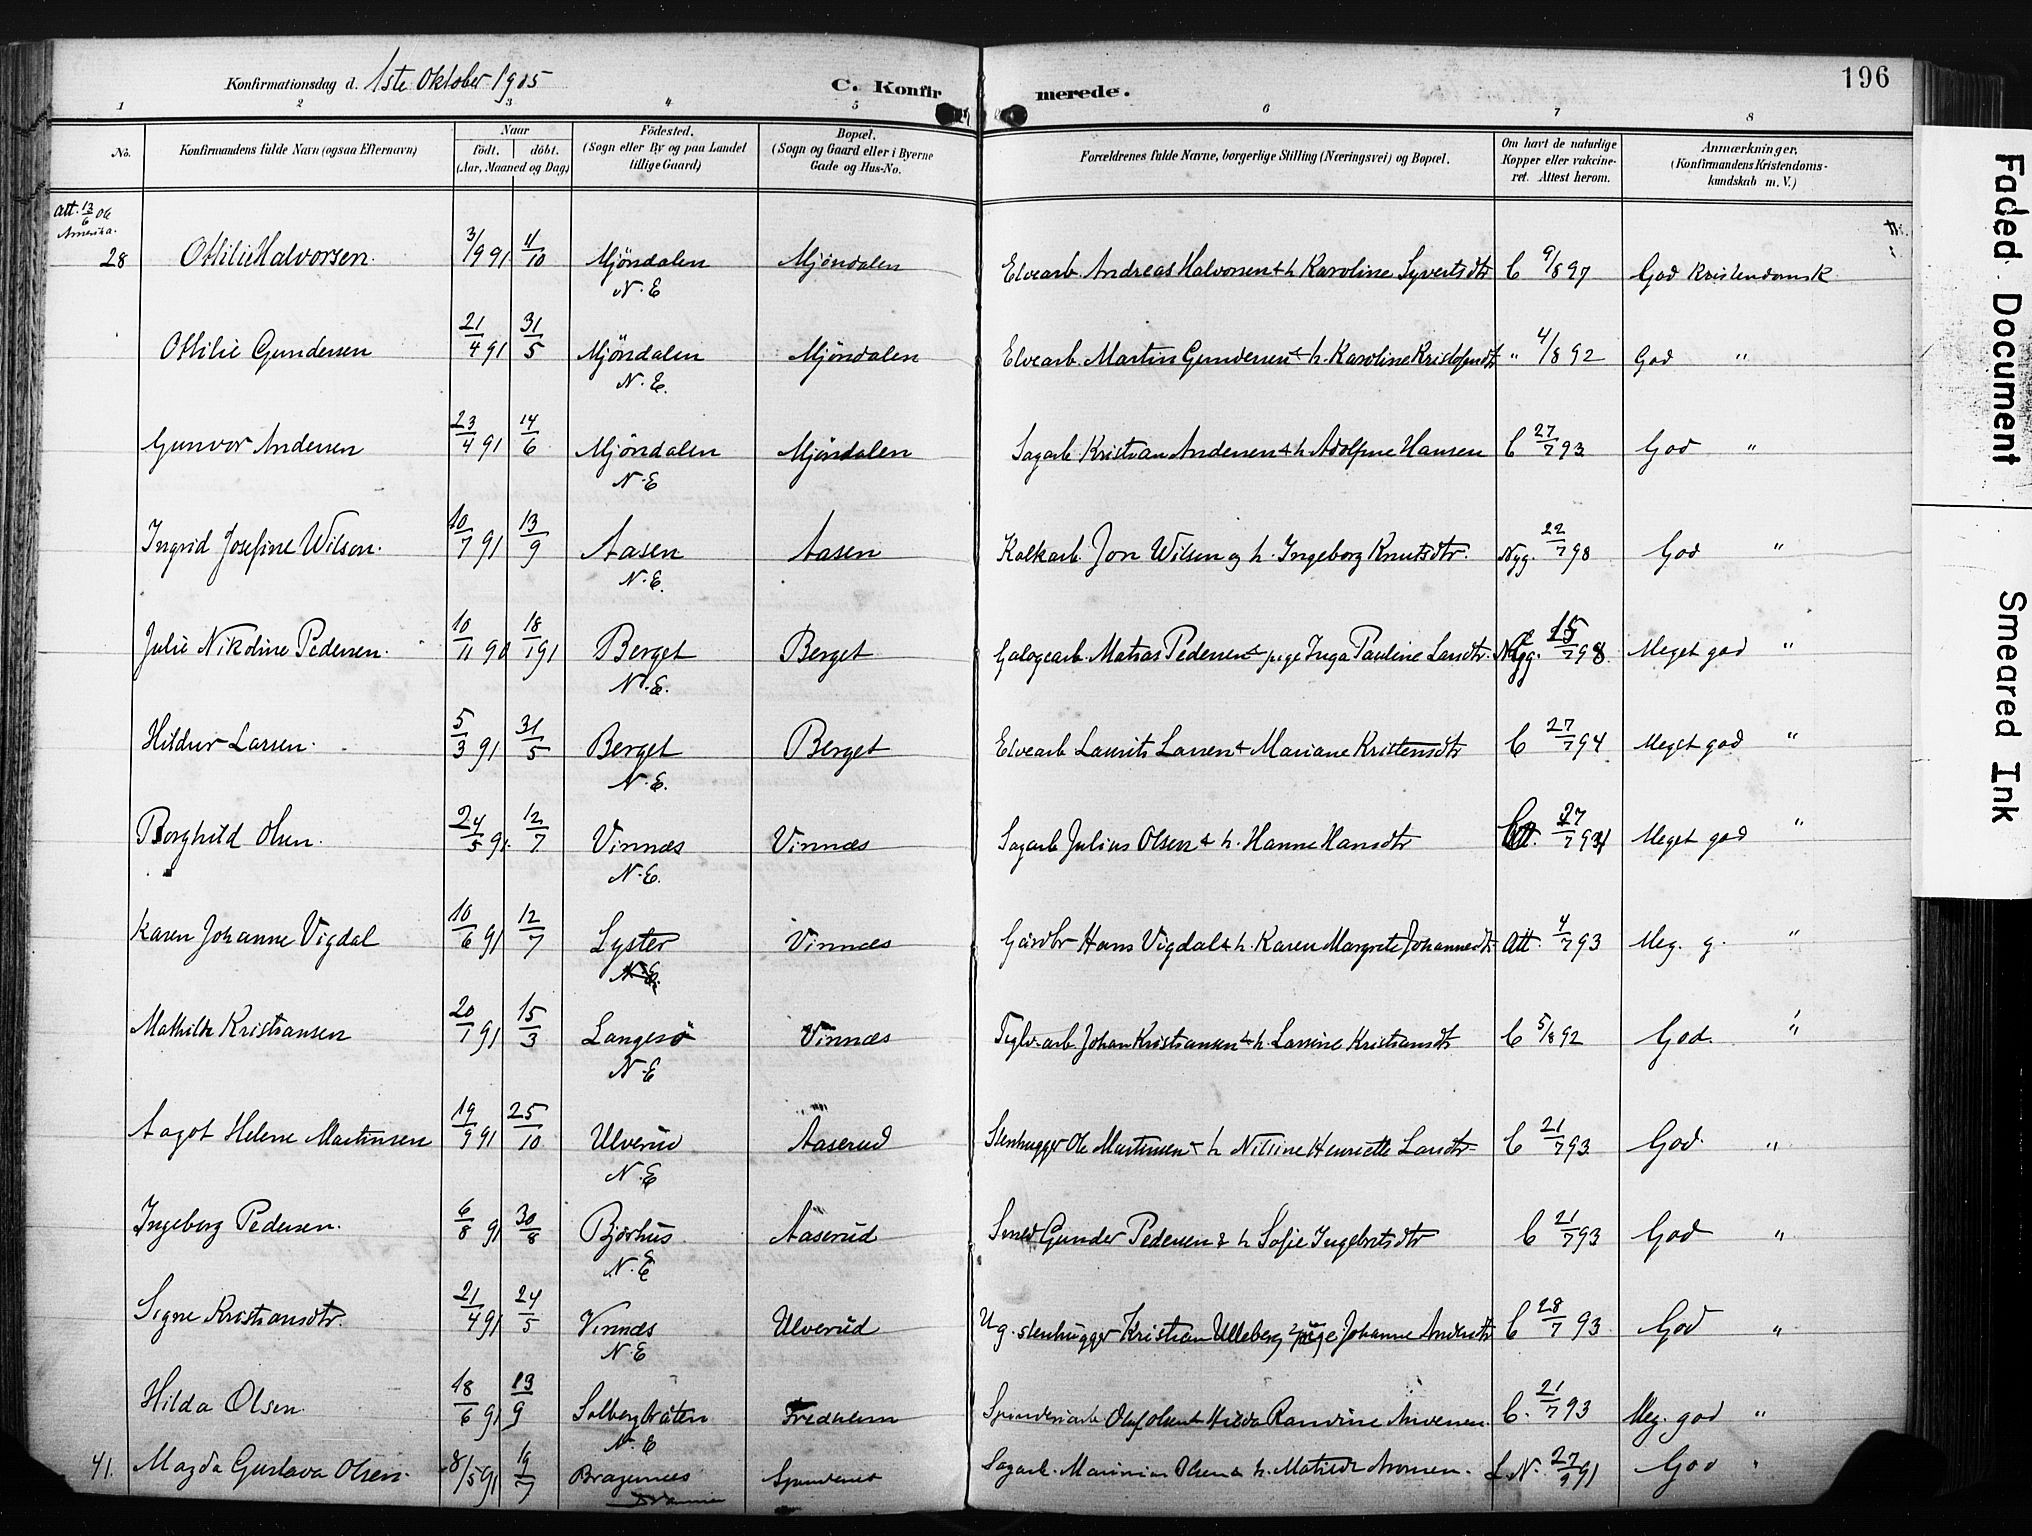 Konfirmationsdag d. 1ste Oktober 1905 C. Konfirmerede. 196
1 2 3 4 5 6 7 8
No. Konfirmandens fulde Navn (ogsaa Efternavn) Naar födt. döbt. (Aar, Maaned og Dag) Födested. (Sogn eller By og paa Landet tillige Gaard) Bopæl. (Sogn og Gaard eller i Byerne Gade og Hus-No. Forældrenes fulde Navne, borgerlige Stilling (Næringsvei) og Bopæl. Om havt de naturlige Kopper eller vakcineret. Attest herom. Anmærkninger, (Konfirmandens Kristendomskundskab m. V.)
att. 13/6 06
Amerika.
28 Othilie Halvorsen. 3/9 91 11/10 Mjöndalen N.E Mjöndalen Elvearb. Andreas Halvorsen & h Karoline Syvertsdtr C 9/8 97 God Kristendomsk
Othilie Gundersen 21/4 91 31/5 Mjöndalen N.E. Mjöndalen Elvearb. Martin Gundersen & h. Karoline Kristofersdtr " 4/8 92 God "
Gunvor Andersen 23/4 91 14/6 Mjöndalen N.E Mjöndalen Sagarb Kristian Andersen & h Adolfine Hansen C 27/7 93 God "
Ingrid Josefine Wilson. 10/7 91 13/9 Aasen N.E. Aasen Kalkarb. Jon Wilson og h. Ingeborg Knutsdtr. Nyg. 22/7 98 God "
Julie Nikoline Pedersen. 10/11 90 18/1 91 Berget N.E. Berget Matias Pedersen & pige Inga Pauline Larsdtr. Nyg. 15/7 98 Meget god "
Hildur Larsen. 5/3 91 31/5 Berget N.E. Berget Elvearb Laurits Larsen & Mariane Kristensdtr C 27/7 94 Meget god "
Borghild Olsen. 24/5 91. 12/7 Vinnæs N.E. Vinnæs Sagarb Julius Olsen & h. Hanne Hansdtr 27/7 94 Meget god "
Karen Johanne Vigdal 10/6 91 12/7 Lyster N.E. Vinnæs Gårdbr Hans Vigdal & h. Karen Margrete Johannesdtr att. 4/7 93 Meg. g. "
Mathilde Kristiansen 20/7 91 15/3 Langesö N.E Vinnæs Teglv.arb. Johan Kristiansen & h. Larsine Kristiansdtr C 5/8 92 God. "
Aagot Helene Martinsen 19/9 91 25/10 Ulverud N.E Aaserud Stenhugger Ole Martinsen & h Nilsine Henriette Larsdtr C 21/7 93 God. "
Ingeborg Pedersen. 6/8 91 30/8 Bjørhus N.E Aaserud Smed Gunder Pedersen & h Sofie Ingebretsdtr C 21/7 93 God "
Signe Kristiansdtr. 21/4 91 24/5 Vinnæs N.E Ulverud Ug. stenhugger Kristian Ulleberg & pige Johanne Andersdtr C 28/7 93 God "
Hilda Olsen. 18/6 91 13/9 Solbergbråten N.E Fredholm Spinderiarb Olaf Olsen & Hilda Randine Aivesen. C. 21/7 93 Meg. god "
41. Magda Gustava Olsen. 8/5 91 19/7 Bragernæs Spinderiet Sagarb. Olsen & h. Matilde L.N. 27/9 91 God "
Faded Document
Smeared Ink